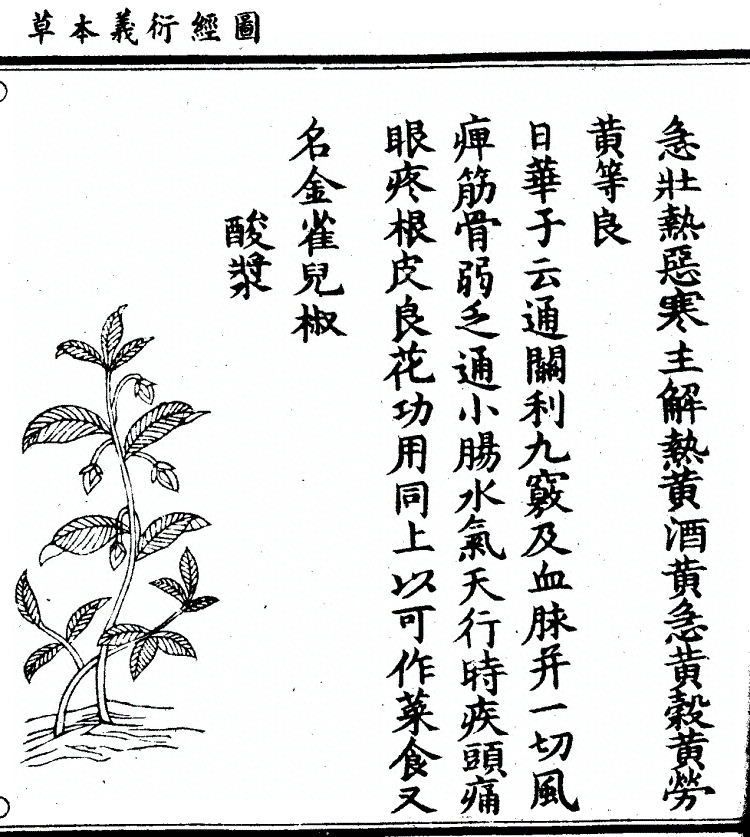 圖經衍義本草
急壯熱惡寒主解熱黃酒黃急黃穀黃勞
黃等良
日華子云通關利九竅及血脉并一切風
痺筋骨弱乏通小腸水氣天行時疾頭痛
眼疼根皮良花功用同上以可作菜食又
名金雀兒椒
酸漿